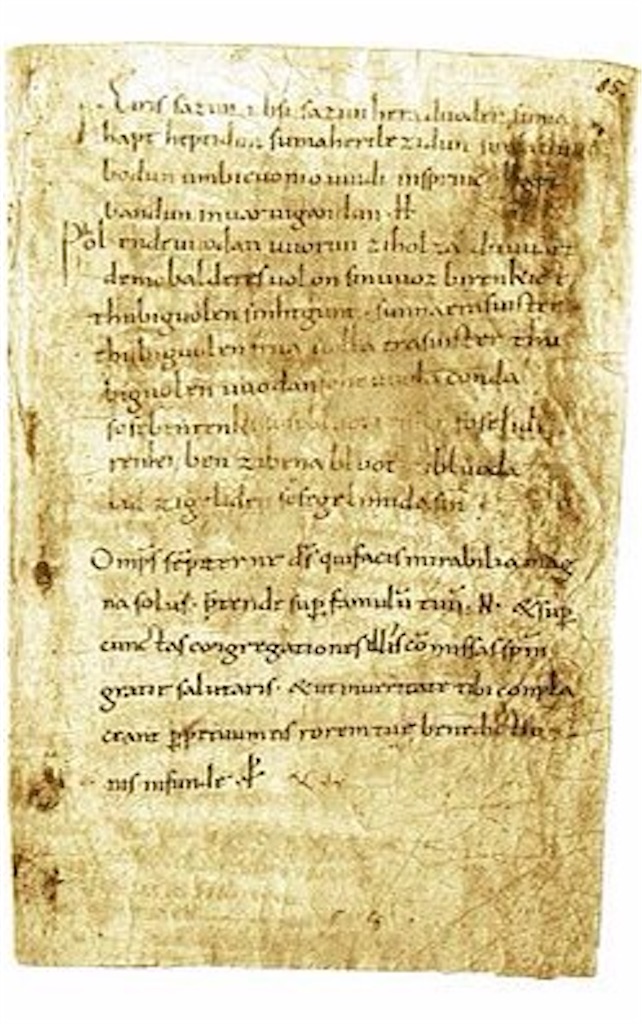 85.
Eiris sazun idisi sazun hera duoder suma
hapt heptidun sumaherilezidun sumaclu
bodun umbicuoniouuidi insprinc hapt
bandun inuar uigandun H
Phol endeuuodan uuorun ziholza du uuart
demobalderes uolon sinuuoz birenkict
thubiguolen sinhtgunt · sunnaerasuister
thubiguolen friia uolla erasuister thu
biguolen uuodan sohe uuola conda
sosebenrenki sosebluotrenki soselidi
renki ben zibena bluot zibluoda
lid zigeliden sosegelimida sin
Omp̄s sēpiterne d̄s quifacis mirabilia mag
na solus · p̄tende sup̱ famulū tuū · N · &sup̱
cunctas congregationes illis cōmissas sp̄m
gratie salutaris · &utinueritate tibi compla
ceant ꝑpetuum eis rorem tue benedictio
nis infunde ·